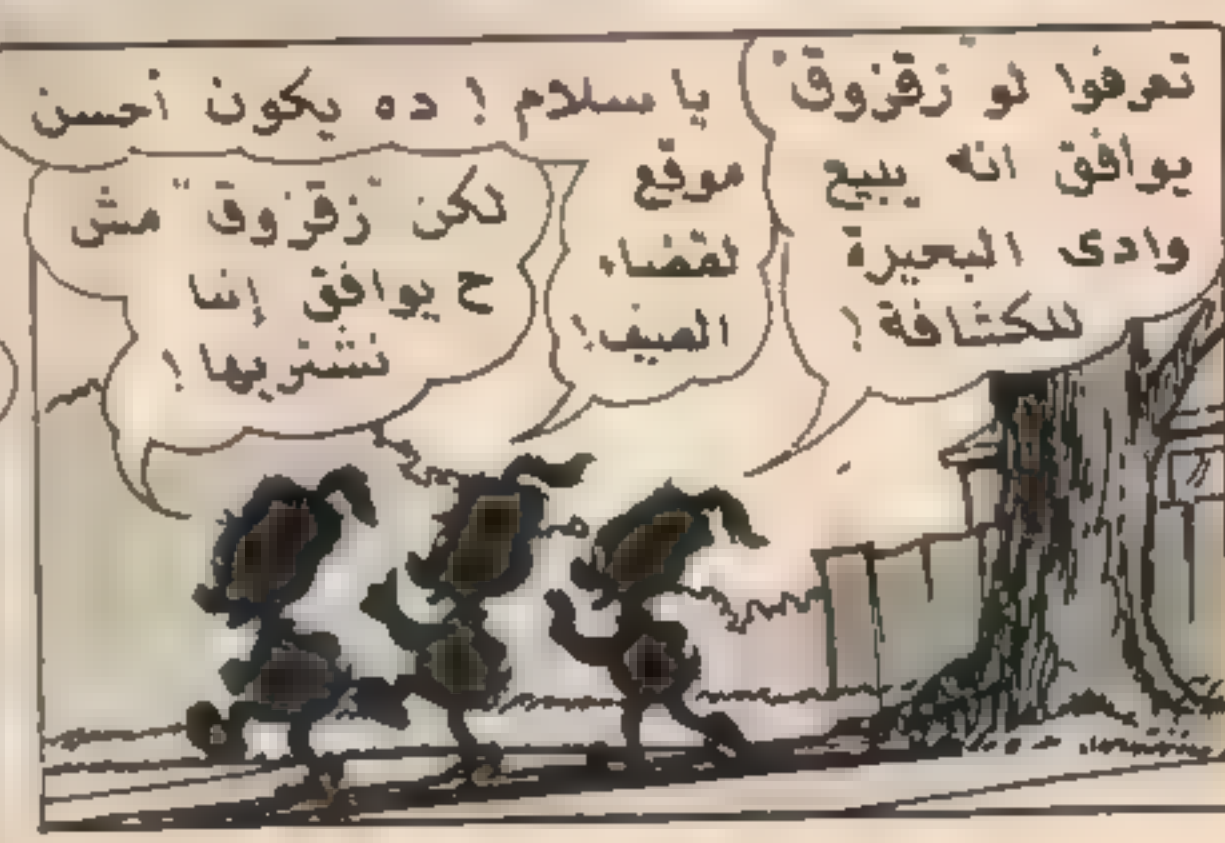 تعرفوا لو "زقزوق"
يوافق انه يبيع
وادى البحيرة
للكشافة !
يا سلام ! ده يكون أحسن
موقع
لقضاء
الصيف!
لكن "زقزوق" مش
ح يوافق إننا
نشتريها !